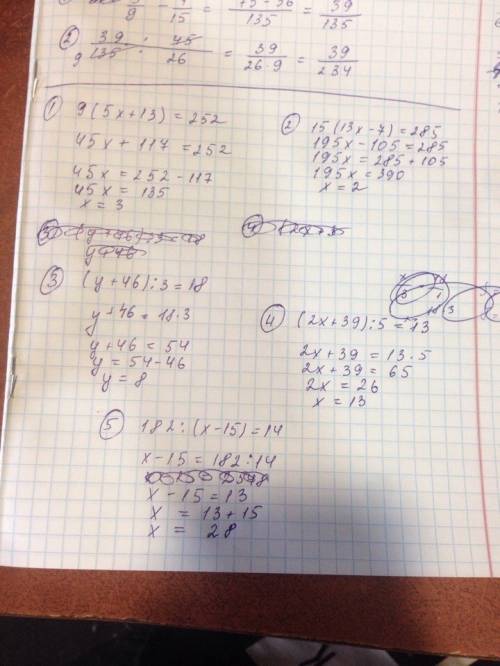 /9 - 7/15 = 75-36/135 = 39/135
② 39/135 : 45/26 = 39/26·9 = 39/234
① 9(5x+13) = 252
45x + 117 = 252
45x = 252 - 117
45x = 135
x = 3
② 15(13x-7) = 285
195x - 105 = 285
195x = 285 + 105
195x = 390
x = 2
③ (y+46):3 = 18
y+46 = 18·3
y+46 = 54
y = 54-46
y = 8
④ (2x+39):5 = 13
2x+39 = 13·5
2x+39 = 65
2x = 26
x = 13
⑤ 182:(x-15) = 14
x-15 = 182:14
x - 15 = 13
x = 13+15
x = 28